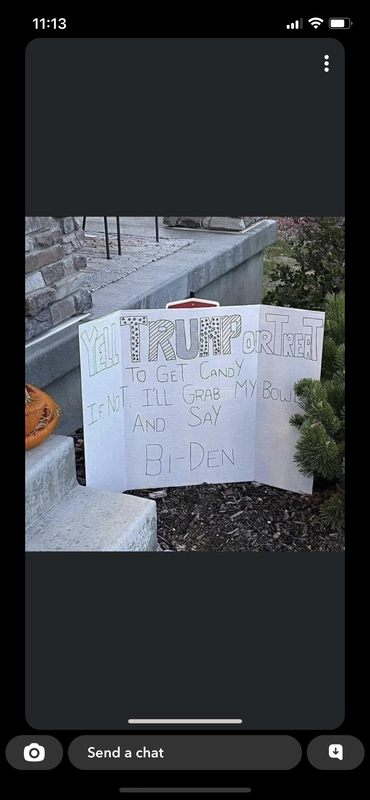 11:13
YELL TRUMP OR TREAT
TO GET CANDY
IF NOT, I'LL GRAB MY BOWL
AND SAY
BI-DEN
Send a chat